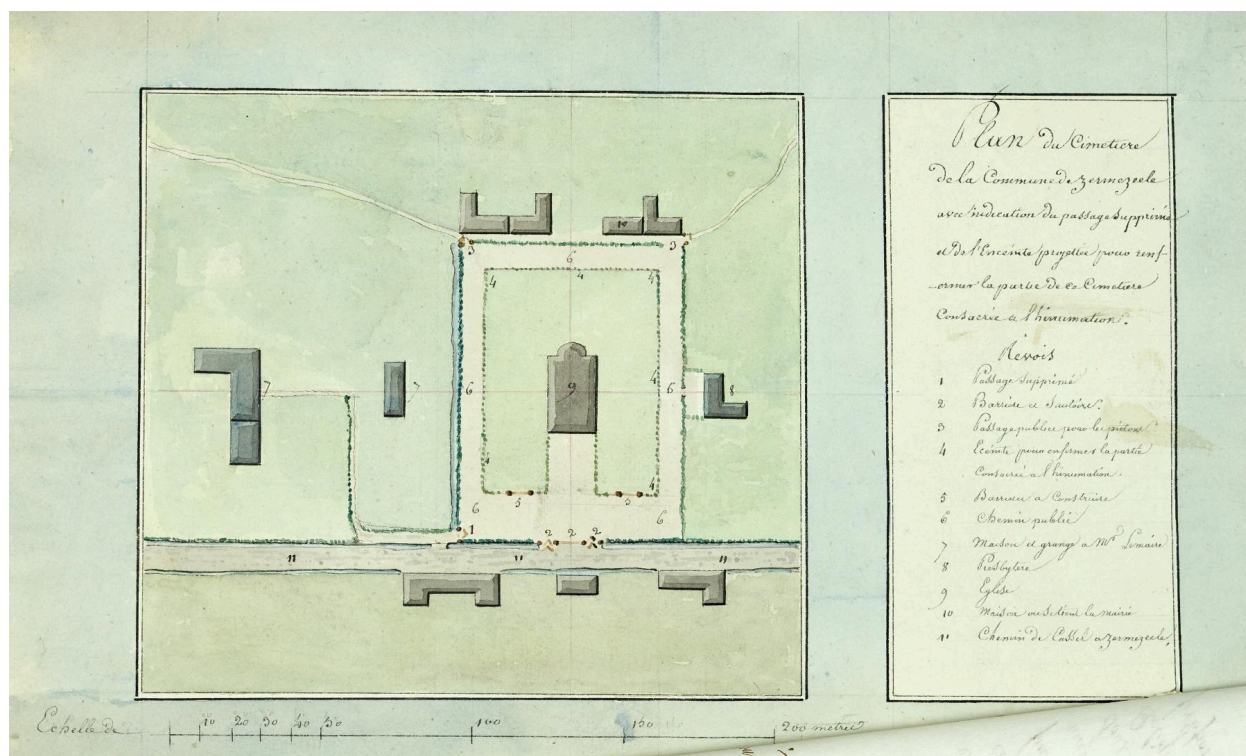 Plan du Cimetiere
de la Commune de Zermezeele
avec indication du passage Supprimé
et de l'Enceinte projettée pour renf-
ormer la partie de ce Cimetiere
Consacrée à l'hinumation.
Révois
1 Passage Supprimé
2 Barrière et Sautoire.
3 Passage publice pour les pietons
4 Eceinte pour enfermer la partie
Consacrée a l'hinumation.
5 Barrieres a Construire
6 Chemin public
7 Maison et grange a Mr Lemaire
8 Presbytere
9 Eglise
10 Maison ou se tient la mairie
11 Chemin de Cassel a Zermezeele.
10
3
3
6
4
4
4
7
7
6
9
4
6
8
4
4
5
5
6
6
1
2
2
2
11
11
11
Echelle de
10 20 30 40 50 100 150 200 metres